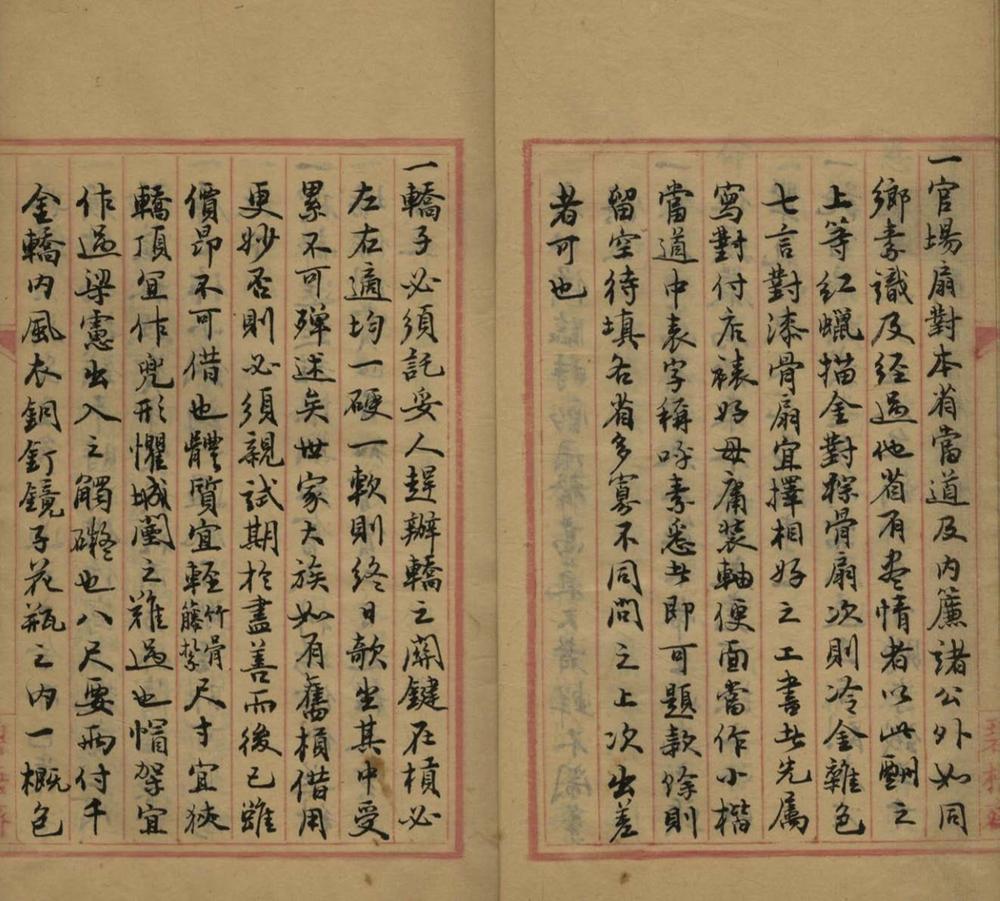 一官場扇對本省當道及內簾諸公外如同
鄉素識及經過他省有盡情者以此酬之
上等紅蠟描金對棕骨扇次則冷金雜色
七言對漆骨扇宜擇相好之工書者先属
寫對付店裱好毋庸裝軸便面當作小楷
當道中表字稱呼素悉者即可題款餘則
留空待填各省多寡不同問之上次出差
者可也
一轎子必須託妥人趕辦轎之關鍵在槓必
左右適均一硬一軟則終日欹坐其中受
累不可殫述矣世家大族如有舊槓借用
更妙否則必須親試期於盡善而後已雖
價昂不可惜也體質宜輕竹骨藤㧱尺寸宜狹
轎頂宜作兜形懼城闉之難過也帽架宜
作過梁憲出入之觸礙也八尺要兩付千
金轎內風衣銅釘鏡子花瓶之內一概色